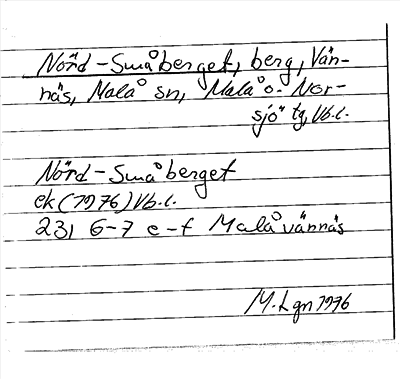 Nörd-Småberget, berg, Vän-
näs, Malå sn, Malå o. Nor-
sjö tg, Vb.l.
Nörd-Småberget
ek (1976) Vb.l.
23I 6-7 e-f Malåvännäs
M. Lgn 1976